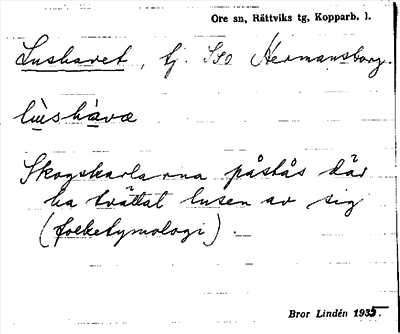 Ore sn, Rättviks tg, Kopparb. l.
Lushavet, tj. SSO Hermansborg.
lùshàva
Skogskarlarna påstås där
ha tvättat lusen av sig
(folketymologi).
Bror Lindén 1935.